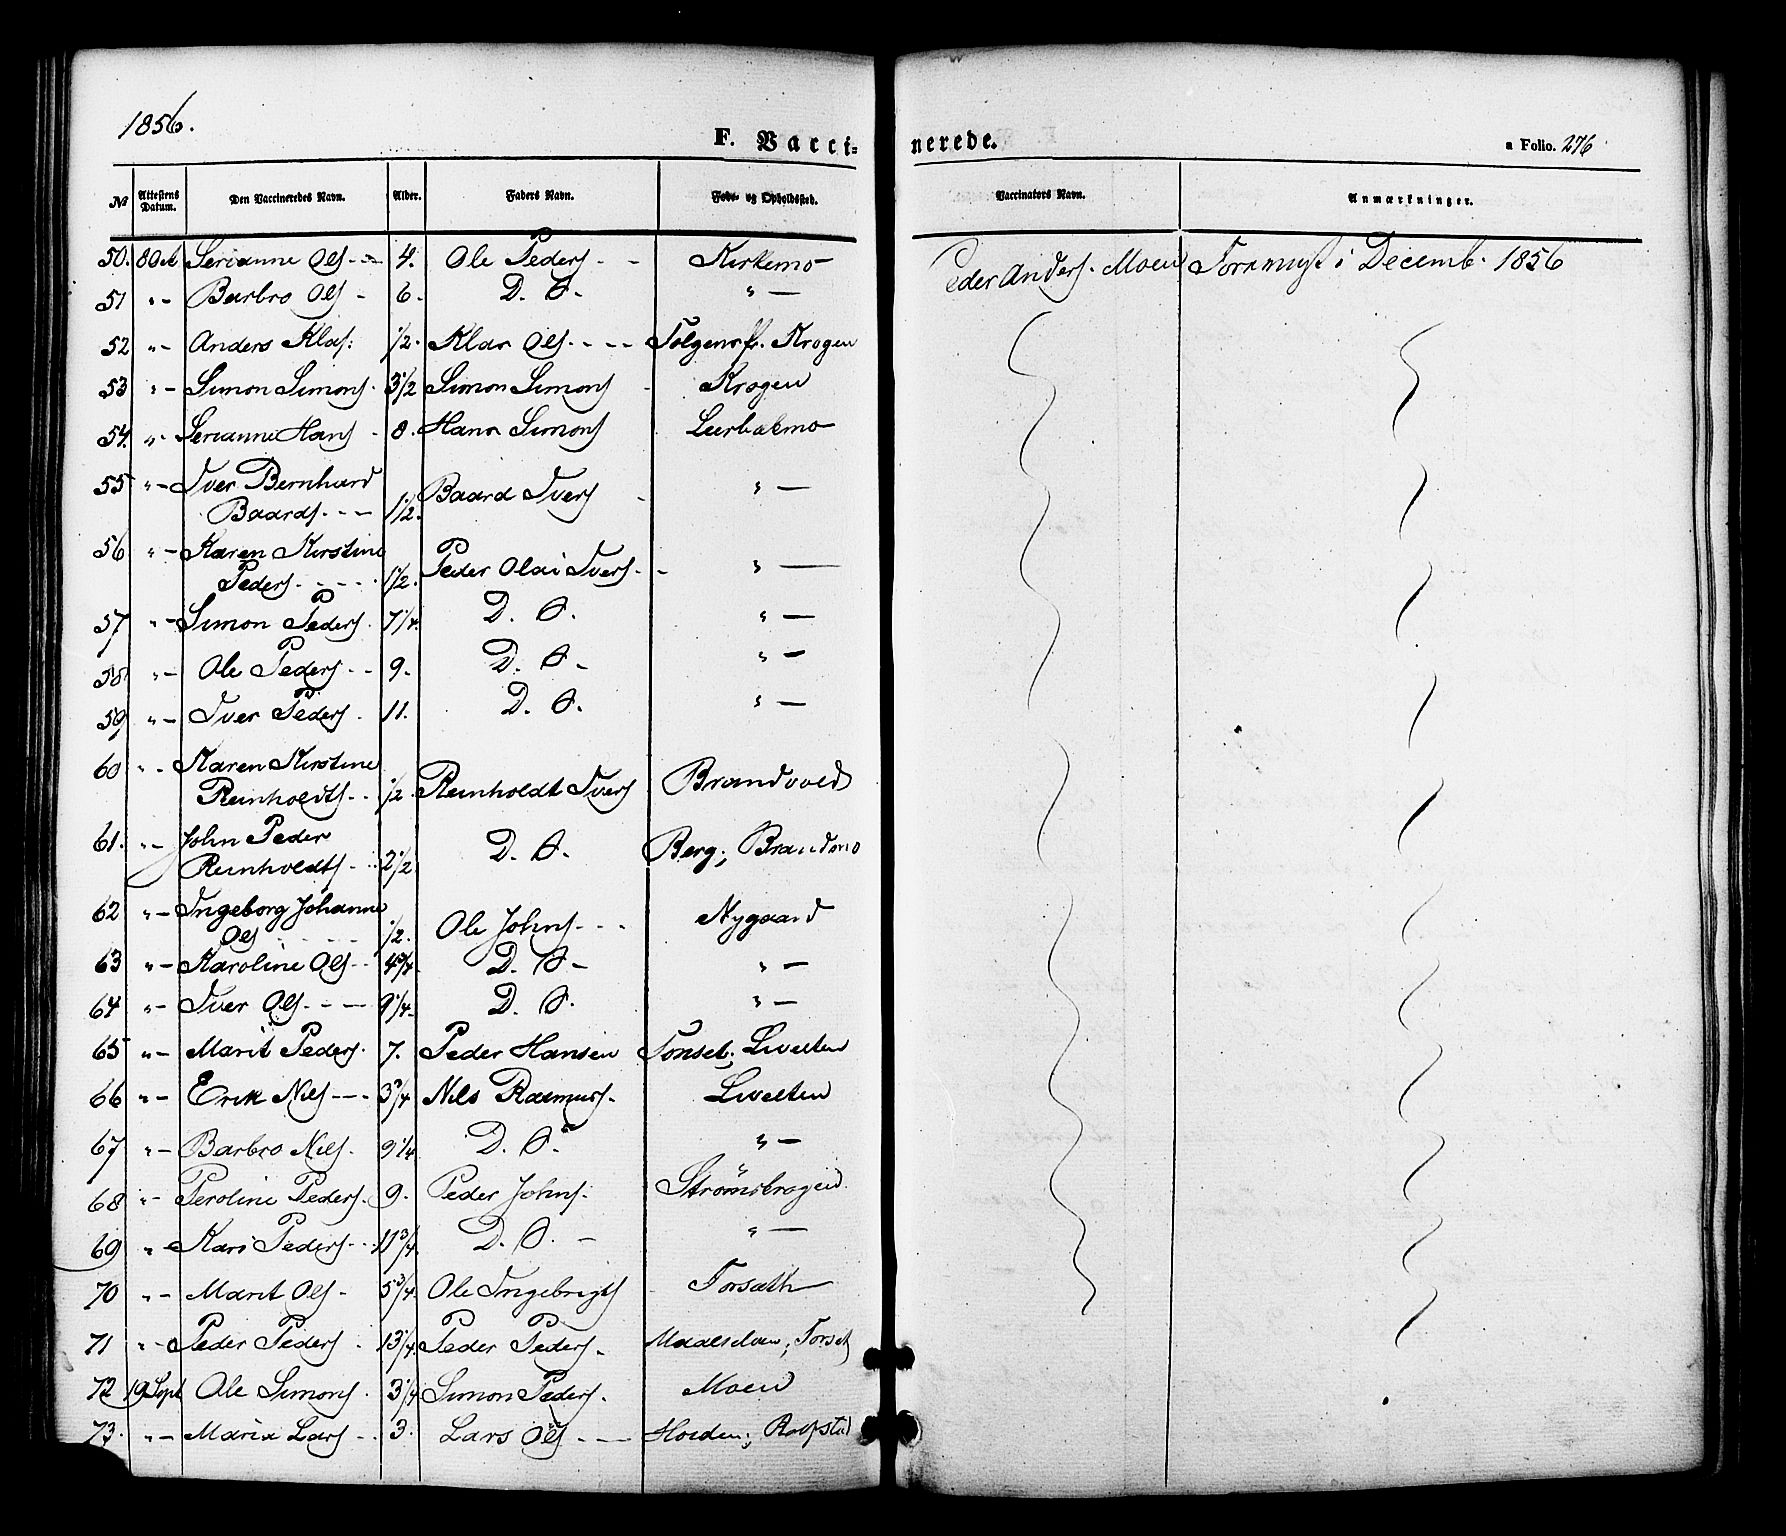 1856.
F. Vacci=
nerede.
a Folio. 276
No
Attestens Datum.
Den Vaccineredes Navn.
Alder.
Faders Navn.
Føde- og Opholdssted.
Vaccinators Navn.
Anmærkninger.
50. 8 Oct Serianne Ols - - 4. Ole Peders - - Kirkemo Peder Anders. Moen i Decemb. 1856
51 " - Barbro Ols - 6. D. O. " -
52 " - Anders Klas: 1/2. Klas Ols. - - - Krogen
53 " - Simon Simons. 3 1/2 Simon Simons - Krogen
54. " - Serianne Hans - 8. Hans Simons Leerbakmo
55 " - Iver Bernhard
Baards. - - 1 1/2. Baard Ivers - " -
56 " - Karen Kirstine
Peders - - - - 1 1/2. Peder Olai Ivers - - " -
57 " - Simon Peders. 7 1/4. D. O. " -
58 " - Ole Peders - - 9. D. O. - " -
59 " - Iver Peders. 11. D. O. " -
60 " - Karen Kirstine
Reinholdts - - 1/2. Reinholdt Ivers Brandvold
61. " - John Peder
Reinholdts - 2 1/2 D. O. Berg; Brandmo
62 " - Ingeborg Johanne
Ols - - - - 1/2. Ole Johns - - - Nygaard
63 " - Karoline Ols - - 4 3/4 D. O. - " -
64 " - Iver Ols - - - 9 1/4. D. O. " -
65 " - Marit Peders. 7. Peder Hansen Tønset; Livelten
66 " - Erik Nils - - - 3 3/4 Nils Rasmus. Livelten
67 " - Barbro Nils. 9 1/4 D. O. " -
68 " - Peroline Peders. 9. Peder Johns. Strømskragen
69 " - Kari Peders - - 11 3/4. D. O. - " -
70 " - Marit Ols - 5 3/4. Ole Ingebrigts Forsæth
71 " - Peder Peders - 13 1/4 Peder Peders - Maalselven; Forset
72 19 Sept Ole Simons. 3 1/4 Simon Peders. Moen
73. " - Maria Lars - - 3. Lars Ols - - -